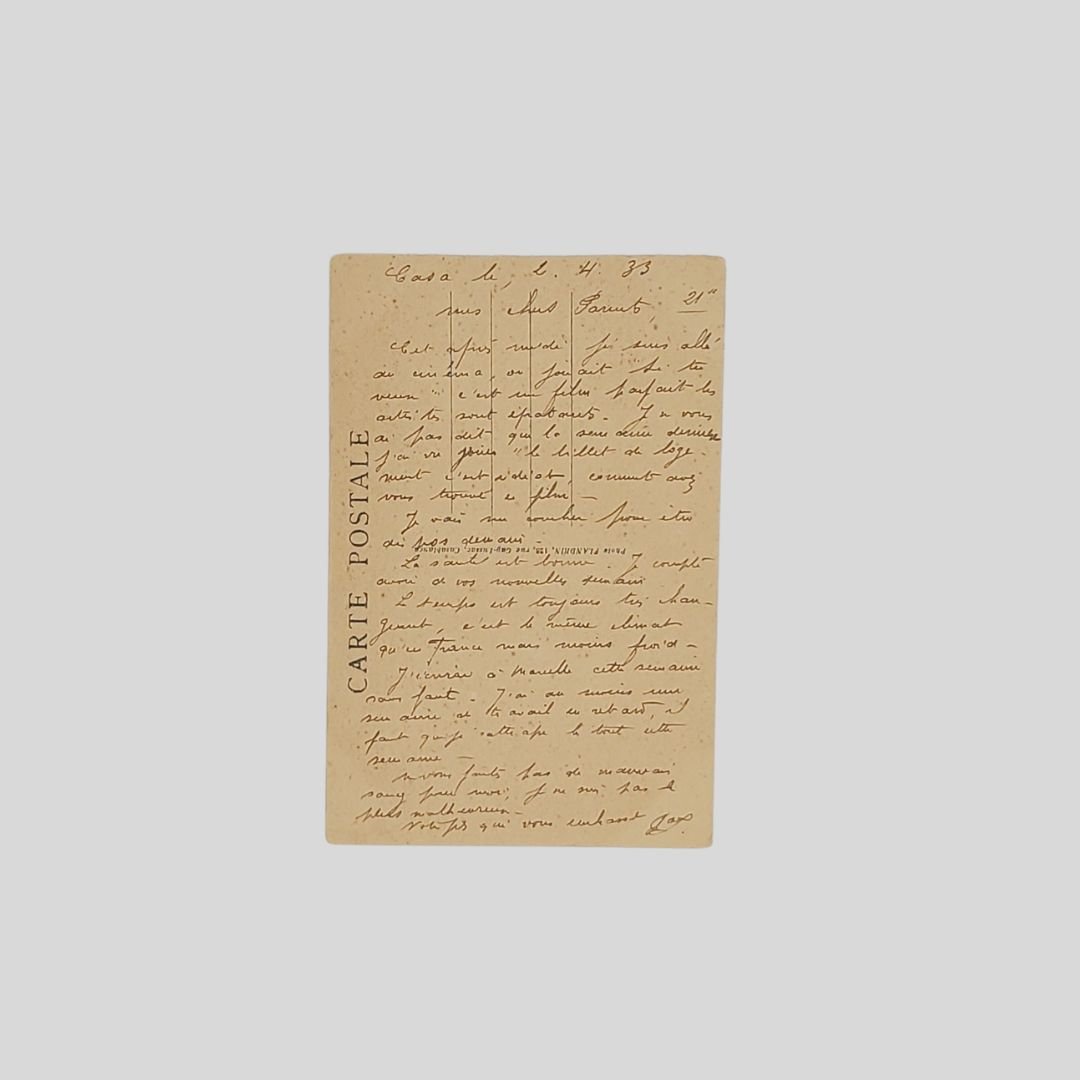 Casa le, 2. 4. 33
mes chers Parents, 21"
Cet après midi je suis allé
au cinéma, on jouait "Si tu
veux" c'est un film parfait les
artistes sont épatants - Je vous
ai pas dit que la semaine dernière
j'ai vu jouer "le billet de loge-
ment c'est idiot, comment avez
vous trouvé ce film -
Je vais me coucher pour être
dispos demain -
Photo FLANDRIN, 128, rue Gay-Lussac, Casablanca
La santé est bonne. Je compte
avoir de vos nouvelles demain
Le temps est toujours très chan-
geant, c'est le même climat
qu'en France mais moins froid -
J'écrirai à Marcelle cette semaine
sans faut - J'ai au moins une
semaine de travail en retard, il
faut que je rattrape le tout cette
semaine -
ne vous faites pas de mauvais
sang pour moi, je ne suis pas le
plus malheureux -
Votre fils qui vous embrasse
CARTE POSTALE